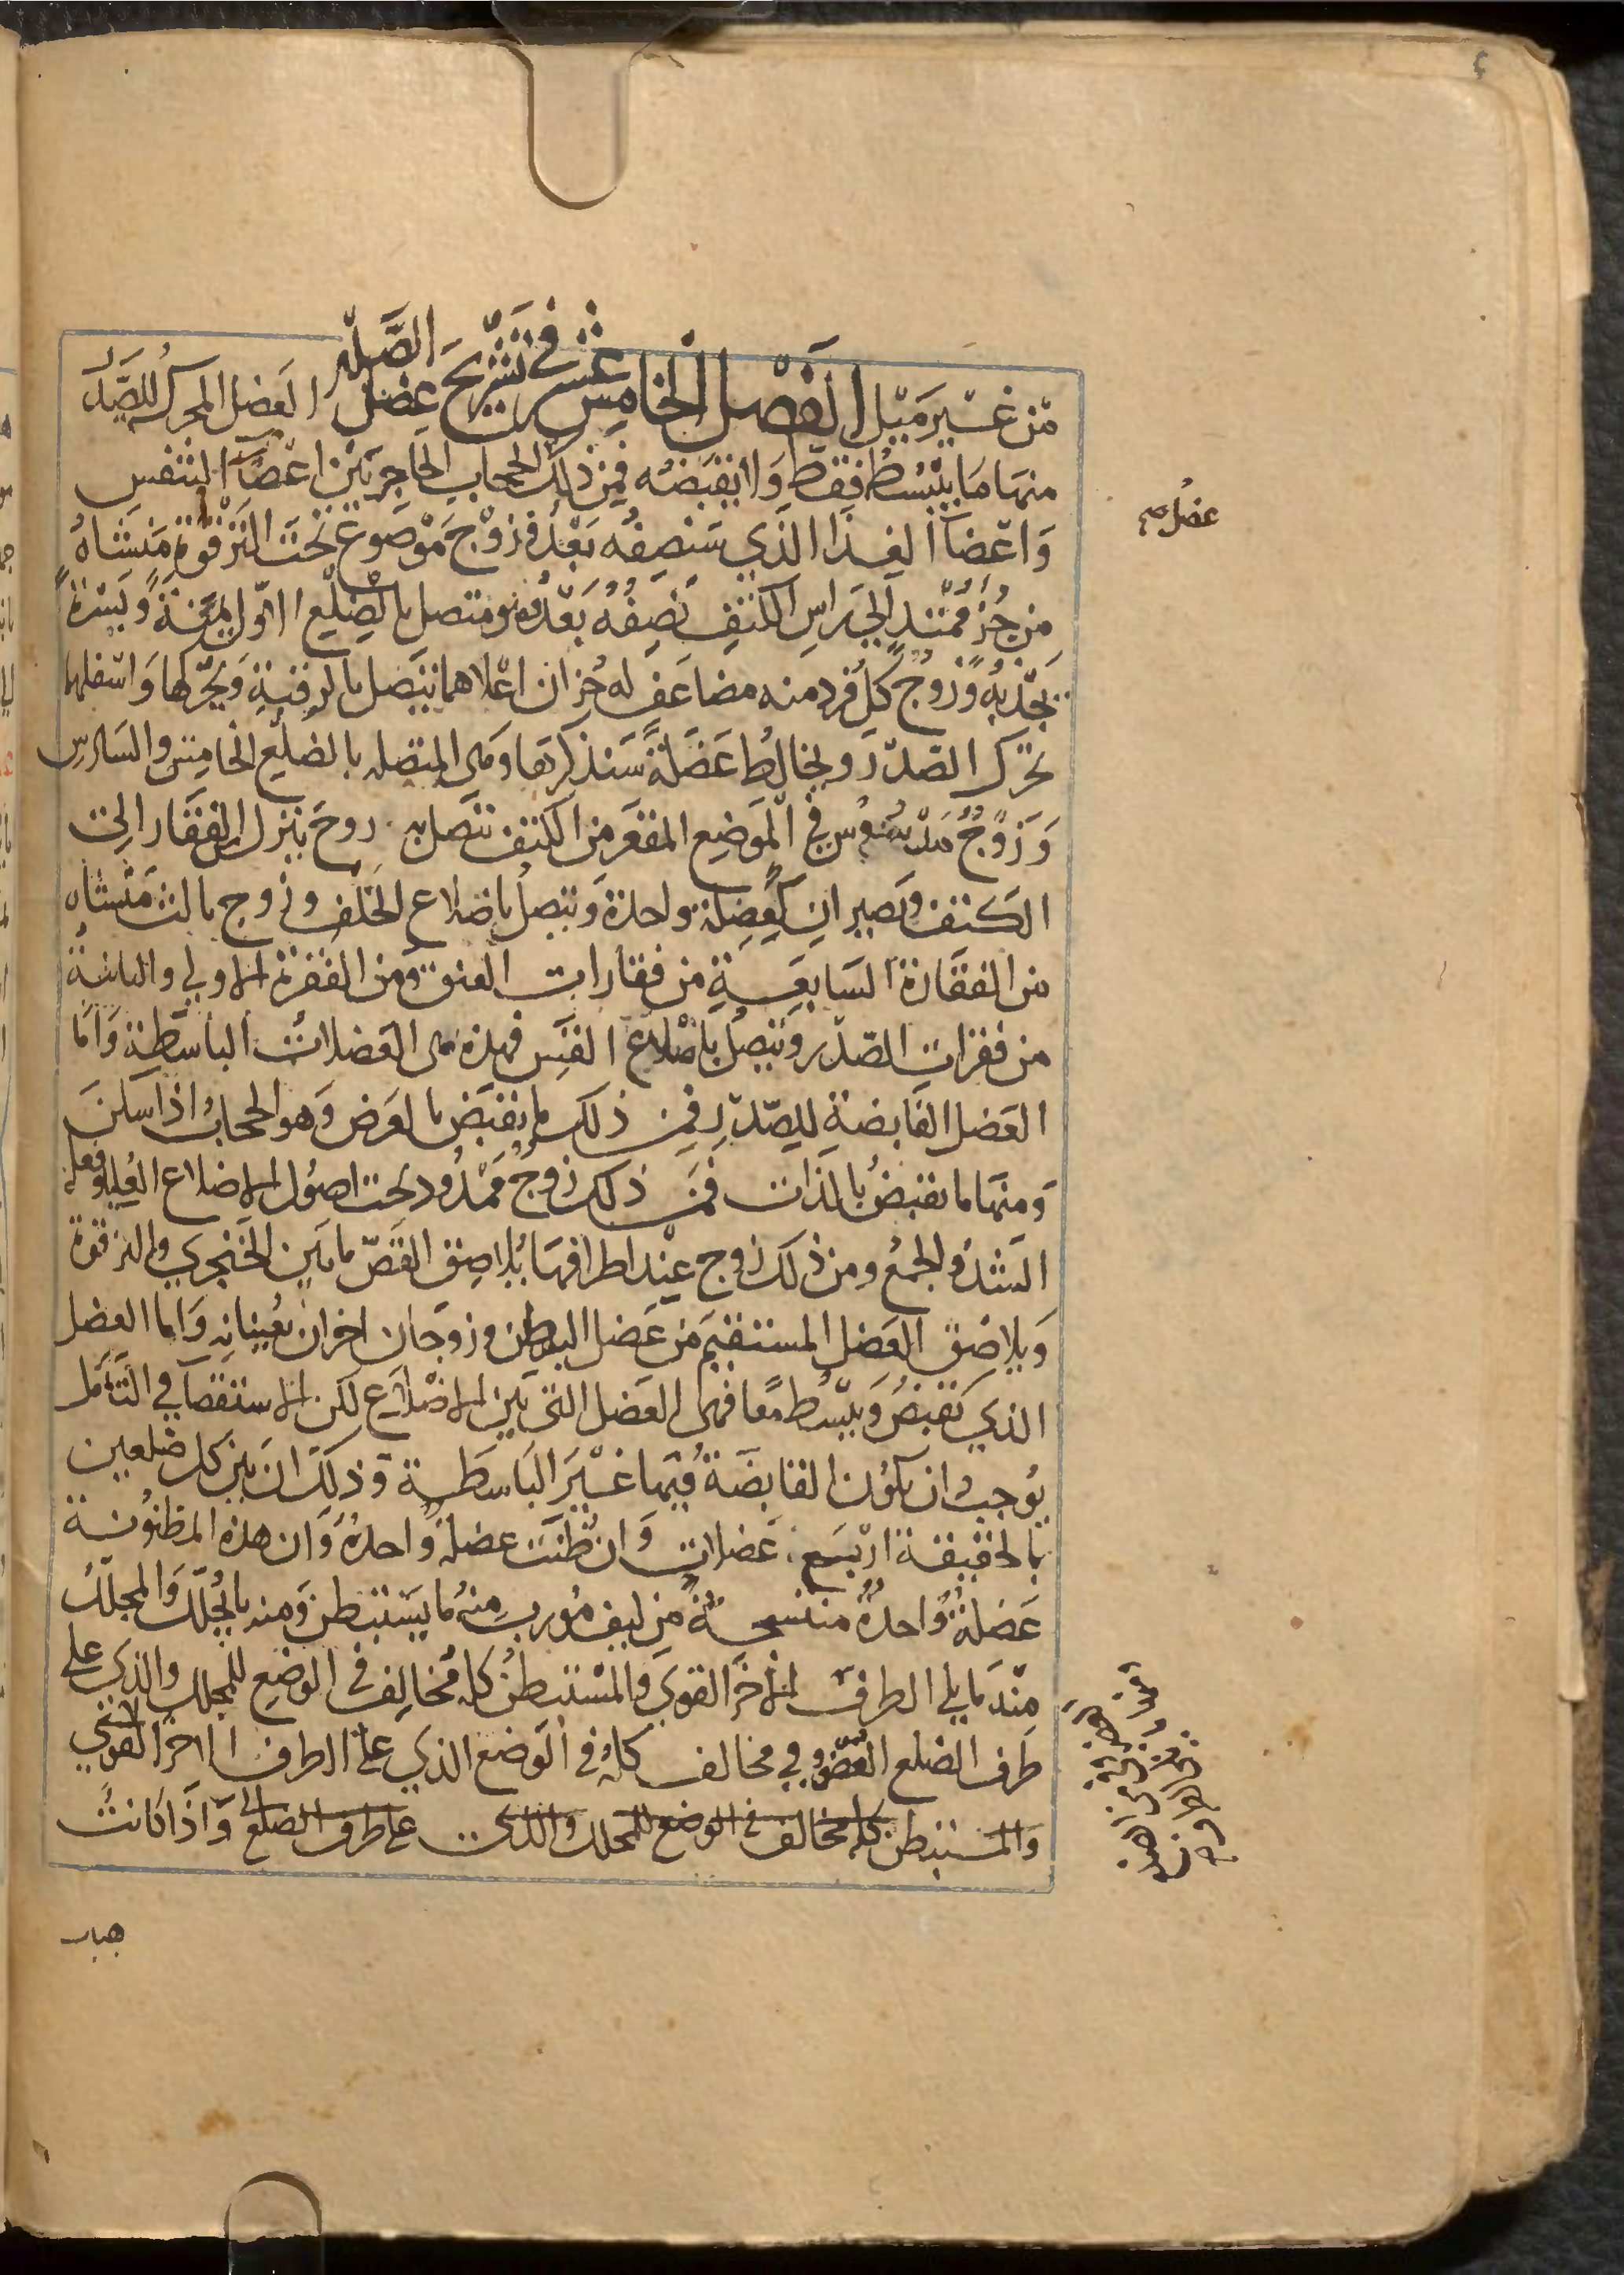 من غير ميل الفصل الخامس عشر في تشريح عضل الصدر العضل المحركة للصدر
منها ما يبسط فقط ولا يقبضه فمن ذلك الحجاب الحاجز بين اعضآ التنفس
واعضآ الغذا الذي سنصفه بعد وزوج موضوع تحت الترقوة منشاه
من جز ممتد الي راس الكتف نصفه بعد وهو متصل بالضلع الاول يمنة ويسرة
يجذبه وزوج كل فرد منه مضاعف له جزان اعلاهما يتصل بالرقبة ويحركها واسفلهما
يحرك الصدر ويخالط عضلة سنذكرها وهي المتصله بالضلع الخامس والسادس
وزوج مدسوس في الموضع المقعر من الكتف تتصل به روج ينزل من الفقار الي
الكتف ويصيران كعضلة واحدة ويتصل باضلاع الخلف وزوج ثالث منشاه
من الفقارة السابعة من فقارات العنق ومن الفقرة الاولي والثانية
من فقرات الصدر ويتصل باضلاع القس فهذه هي العضلات الباسطة واما
العضل القابضة للصدر فمن ذلك ما يقبض بالعرض وهو الحجاب اذا سكن
ومنها ما يقبض بالذات فمن ذلك زوج ممدود تحت اصول الاضلاع العليا وفعله
الشد والجمع ومن ذلك زوج عند اطرافها يلاصق القص ما بين الخنجري والترقوة
ويلاصق العضل المستقيم من عضل البطن وزوجان اخران يعينانه واما العضل
الذي يقبض ويبسط معا فهي العضل التي بين الاضلاع لكن الاستقصا في التامل
يوجب ان يكون القابضة فيها غير الباسطة وذلك ان بين كل ضلعين
بالحقيقة اربع عضلات وان ظنت عضلة واحدة وان هذه المظنونة
عضلة واحدة منتسجة من ليف مورب منه ما يستبطن ومنه ما يجلل والمجلل
منه ما يلي الطرف الاخر القوي والمستبطن كله مخالف في الوضع للمجلل والذي علي
طرف الضلع الغضروفي مخالف كله في الوضع الذي علي الطرف الاخر القوي
والمستبطن كله مخالف في الوضع للمجلل والذي علي طرف الضلع واذا كانت
هيات
عضل صح